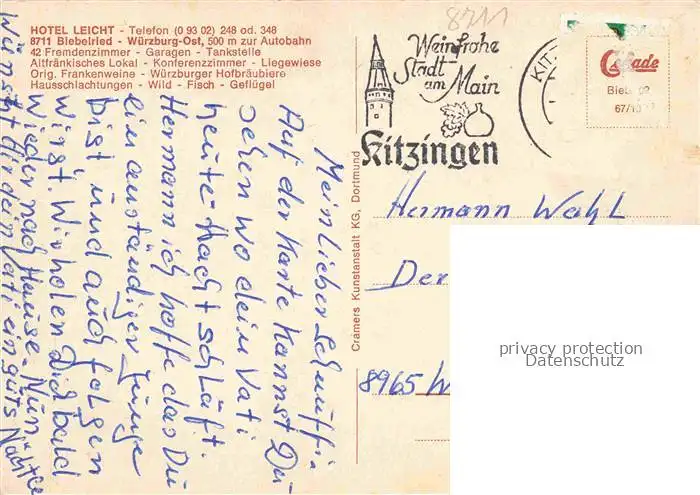 HOTEL LEICHT - Telefon (0 93 02) 248 od. 348
8711 Biebelried - Würzburg-Ost, 500 m zur Autobahn
42 Fremdenzimmer - Garagen - Tankstelle
Altfränkisches Lokal - Konferenzzimmer - Liegewiese
Orig. Frankenweine - Würzburger Hofbräubiere
Hausschlachtungen - Wild - Fisch - Geflügel
Mein lieber Schnuffi.
Auf der Karte kannst Du
sehen wo dein Vati
heute Nacht schläft.
Hermann ich hoffe das Du
ein anständiger Junge
bist und auch folgen
wirst. Wir holen Dich bald
wieder nach Hause. Nun
wünscht dir dein Vati ein guts Nächtle
Cramers Kunstanstalt KG, Dortmund
8711
Weinfrohe
Stadt
am Main
Kitzingen
KIT
Cekade
Bieb 02
67/10
Hermann Wahl
Der
8965
privacy protection
Datenschutz